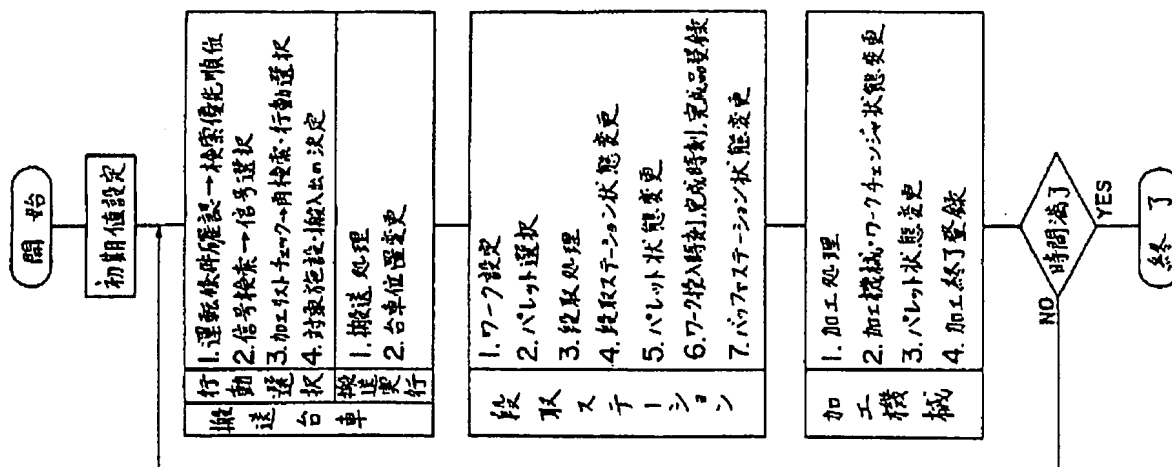 開始
初期値設定
搬送台車
行動選択
1. 運転条件確認→検索優先順位
2. 信号検索→信号選択
3. 加工リストチェック→再検索・行動選択
4. 対象施設・搬入出の決定
搬送実行
1. 搬送処理
2. 台車位置変更
段取ステーション
1. ワーク設定
2. パレット選択
3. 段取処理
4. 段取ステーション状態変更
5. パレット状態変更
6. ワーク投入時刻, 完成時刻, 完成品登録
7. バッファステーション状態変更
加工機械
1. 加工処理
2. 加工機械・ワークチェンジャ状態変更
3. パレット状態変更
4. 加工終了登録
時間満了
NO
YES
終了